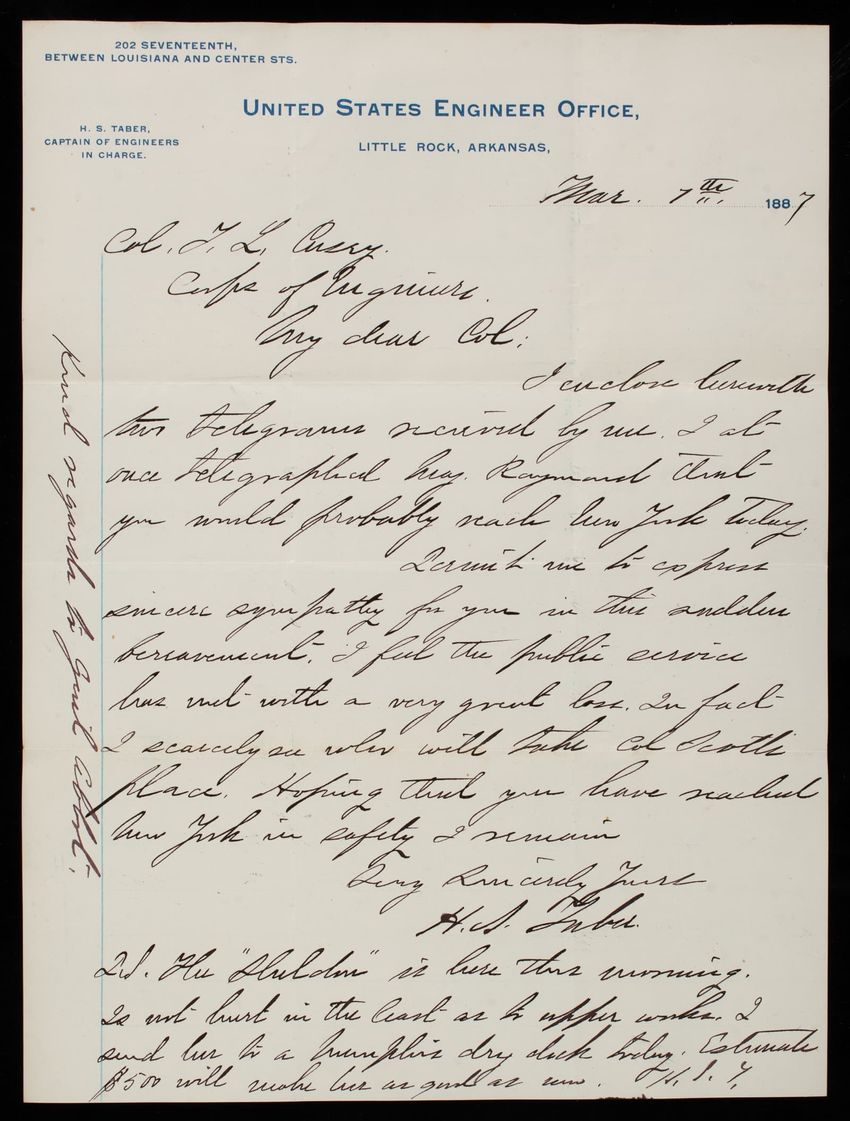 202 SEVENTEENTH,
BETWEEN LOUISIANA AND CENTER STS.
UNITED STATES ENGINEER OFFICE,
H. S. TABER,
CAPTAIN OF ENGINEERS
IN CHARGE.
LITTLE ROCK, ARKANSAS,
Mar. 7th 1887
Col. T. L. Casey.
Corps of Engineers.
My dear Col:
I enclose herewith
two telegrams received by me. I at
once telegraphed Maj. Raymond that
you would probably reach New York today.
Permit me to express
sincere sympathy for you in this sudden
bereavement. I feel the public service
has met with a very great loss. In fact
I scarcely see who will take Col Scotts
place. Hoping that you have reached
New York in safety I remain
Very Sincerely Yours
H. S. Taber.
P.S. The "Sheldon" is here this morning.
Is not hurt in the least as to upper works. I
send her to a Memphis dry dock today. Estimate
$500 will make her as good as new. H. S. T.
Kind regards to Genl Abbot.